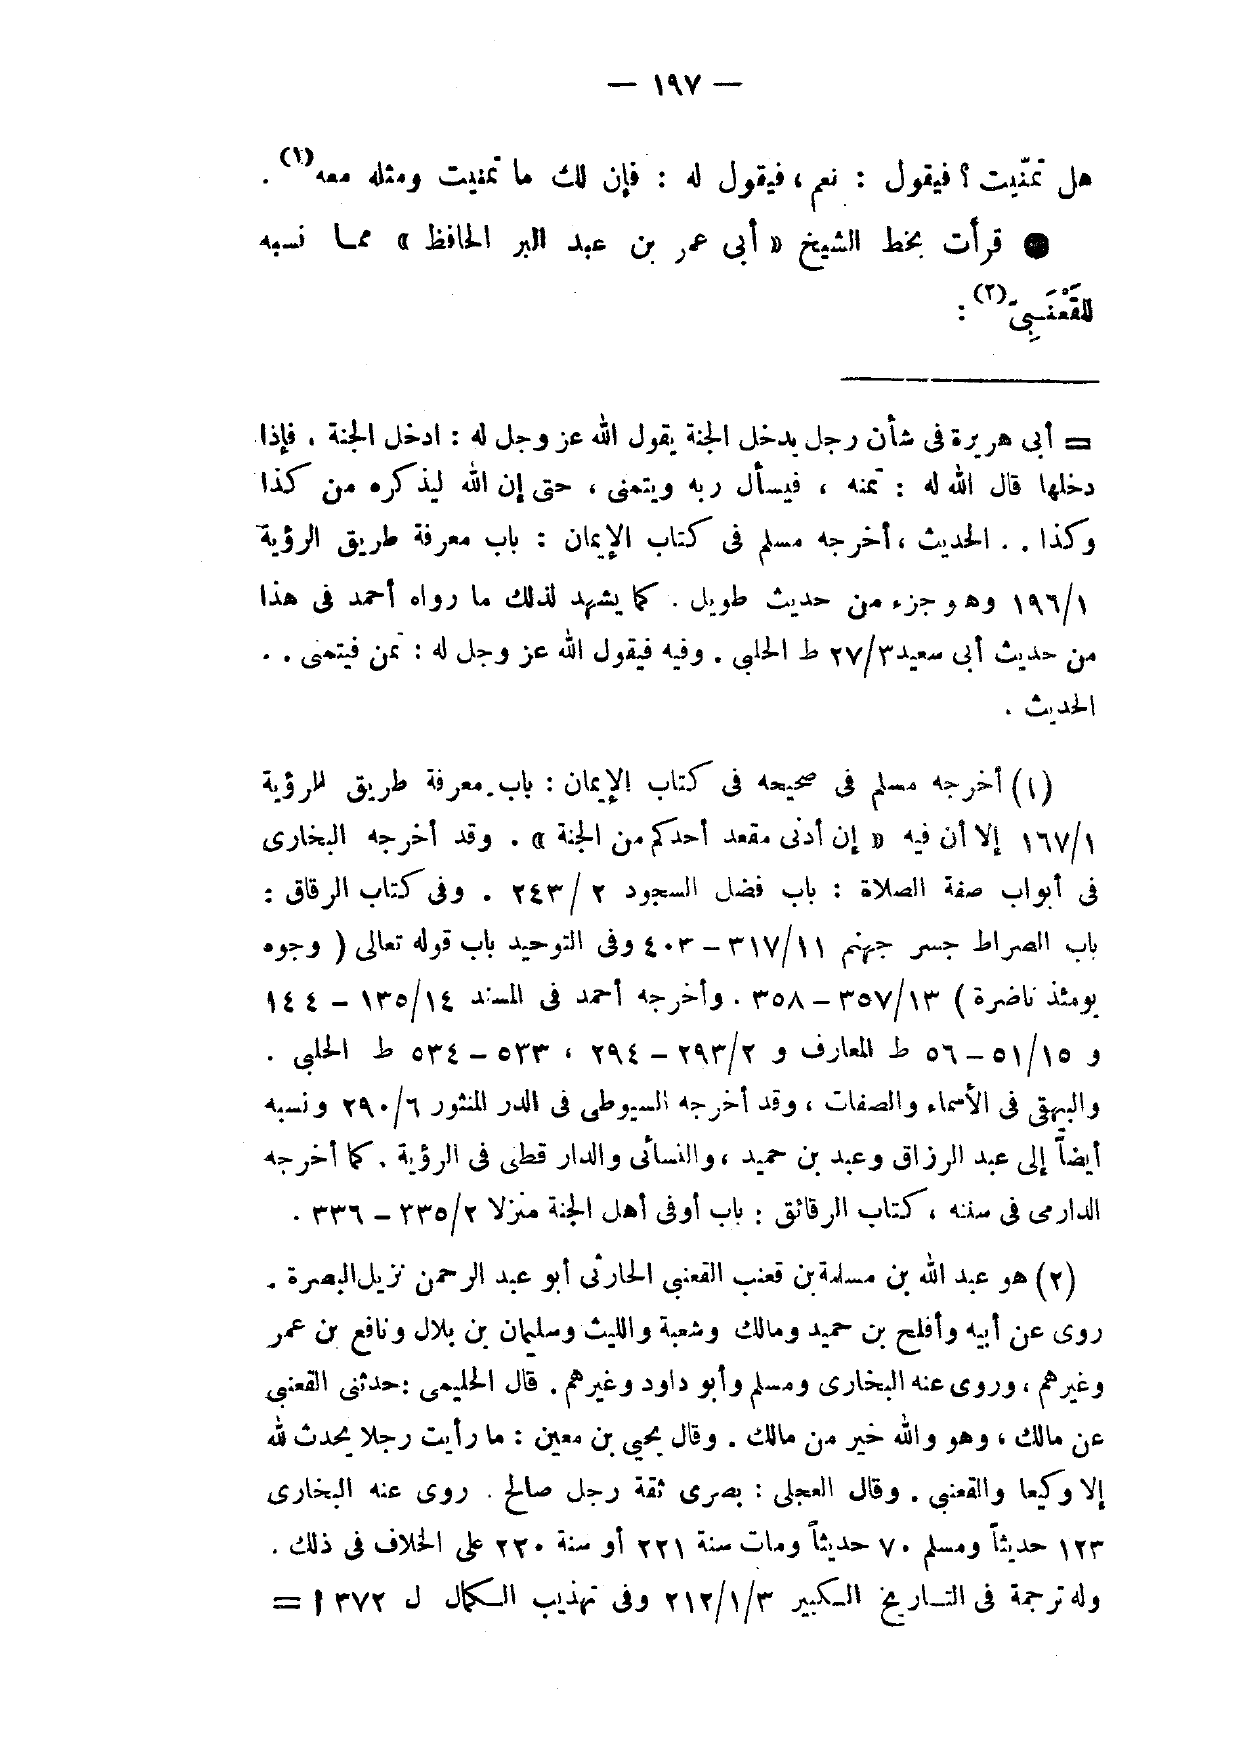 — ١٩٧ —
هل تمنّيت ؟ فيقول : نعم ، فيقول له : فإن لك ما تمنيت ومثله معه (١) .
● قرأت بخط الشيخ « أبى عمر بن عبد البر الحافظ » ممـا نسبه
للقَعْنَـبِىّ (٢) :
= أبى هريرة فى شأن رجل يدخل الجنة يقول الله عز وجل له : ادخل الجنة . فإذا
دخلها قال الله له : تمنه ، فيسأل ربه ويتمنى ، حتى إن الله ليذكره من كذا
وكذا . . الحديث ، أخرجه مسلم فى كتاب الإيمان : باب معرفة طريق الرؤية
١٩٦/١ وهو جزء من حديث طويل . كما يشهد لذلك ما رواه أحمد فى هذا
من حديث أبى سعيد ٢٧/٣ ط الحلبي . وفيه فيقول الله عز وجل له : تمن فيتمنى . .
الحديث .
(١) أخرجه مسلم فى صحيحه فى كتاب الإيمان : باب معرفة طريق الرؤية
١٦٧/١ إلا أن فيه « إن أدنى مقعد أحدكم من الجنة » . وقد أخرجه البخارى
فى أبواب صفة الصلاة : باب فضل السجود ٢٤٣/٢ . وفى كتاب الرقاق :
باب الصراط جسر جهنم ٣١٧/١١ – ٤٠٣ وفى التوحيد باب قوله تعالى ( وجوه
يومئذ ناضرة ) ٣٥٧/١٣ – ٣٥٨ . وأخرجه أحمد فى المسند ١٣٥/١٤ – ١٤٤
و ٥١/١٥ – ٥٦ ط المعارف و ٢٩٣/٢ – ٢٩٤ ، ٥٣٣ – ٥٣٤ ط الحلبي .
والبيهقى فى الأسماء والصفات ، وقد أخرجه السيوطى فى الدر المنثور ٢٩٠/٦ ونسبه
أيضاً إلى عبد الرزاق وعبد بن حميد ، والنسائى والدار قطى فى الرؤية . كما أخرجه
الدارمى فى سننه ، كتاب الرقائق : باب أوفى أهل الجنة منزلا ٣٣٥/٢ – ٣٣٦ .
(٢) هو عبد الله بن مسلمة بن قعنب القعنبي الحارثى أبو عبد الرحمن نزيل البصرة .
روى عن أبيه وأفلح بن حميد ومالك وشعبة والليث وسليمان بن بلال ونافع بن عمر
وغيرهم ، وروى عنه البخارى ومسلم وأبو داود وغيرهم . قال الحليمى : حدثنى القعنبي
عن مالك ، وهو والله خير من مالك . وقال يحيى بن معين : ما رأيت رجلا يحدث لله
إلا وكيعا والقعنبي . وقال العجلى : بصرى ثقة رجل صالح . روى عنه البخارى
١٢٣ حديثاً ومسلم ٧٠ حديثاً ومات سنة ٢٢١ أو سنة ٢٢٠ على الخلاف فى ذلك .
وله ترجمة فى التـاريخ الـكبير ٢١٢/١/٣ وفى تهذيب الـكمال ل ٣٧٢ أ =